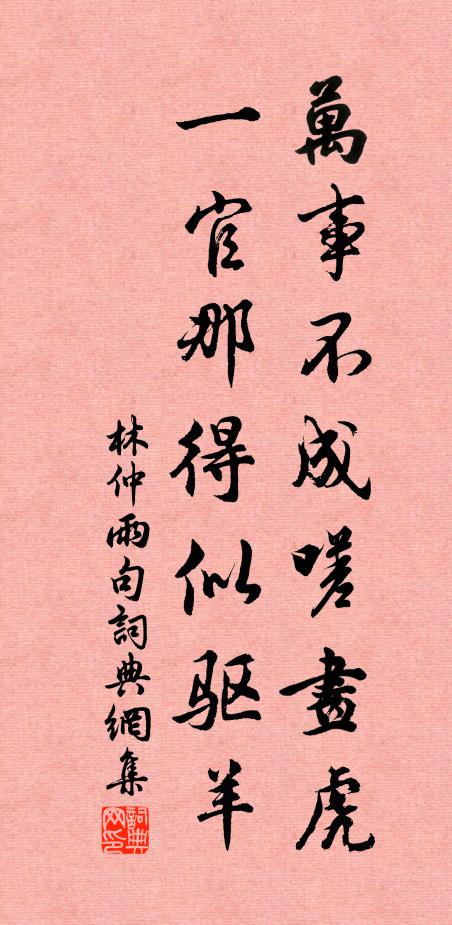 萬事不成嗟畫虎
一官那得似驱羊
林仲雨句詞典網集
詞典
网印